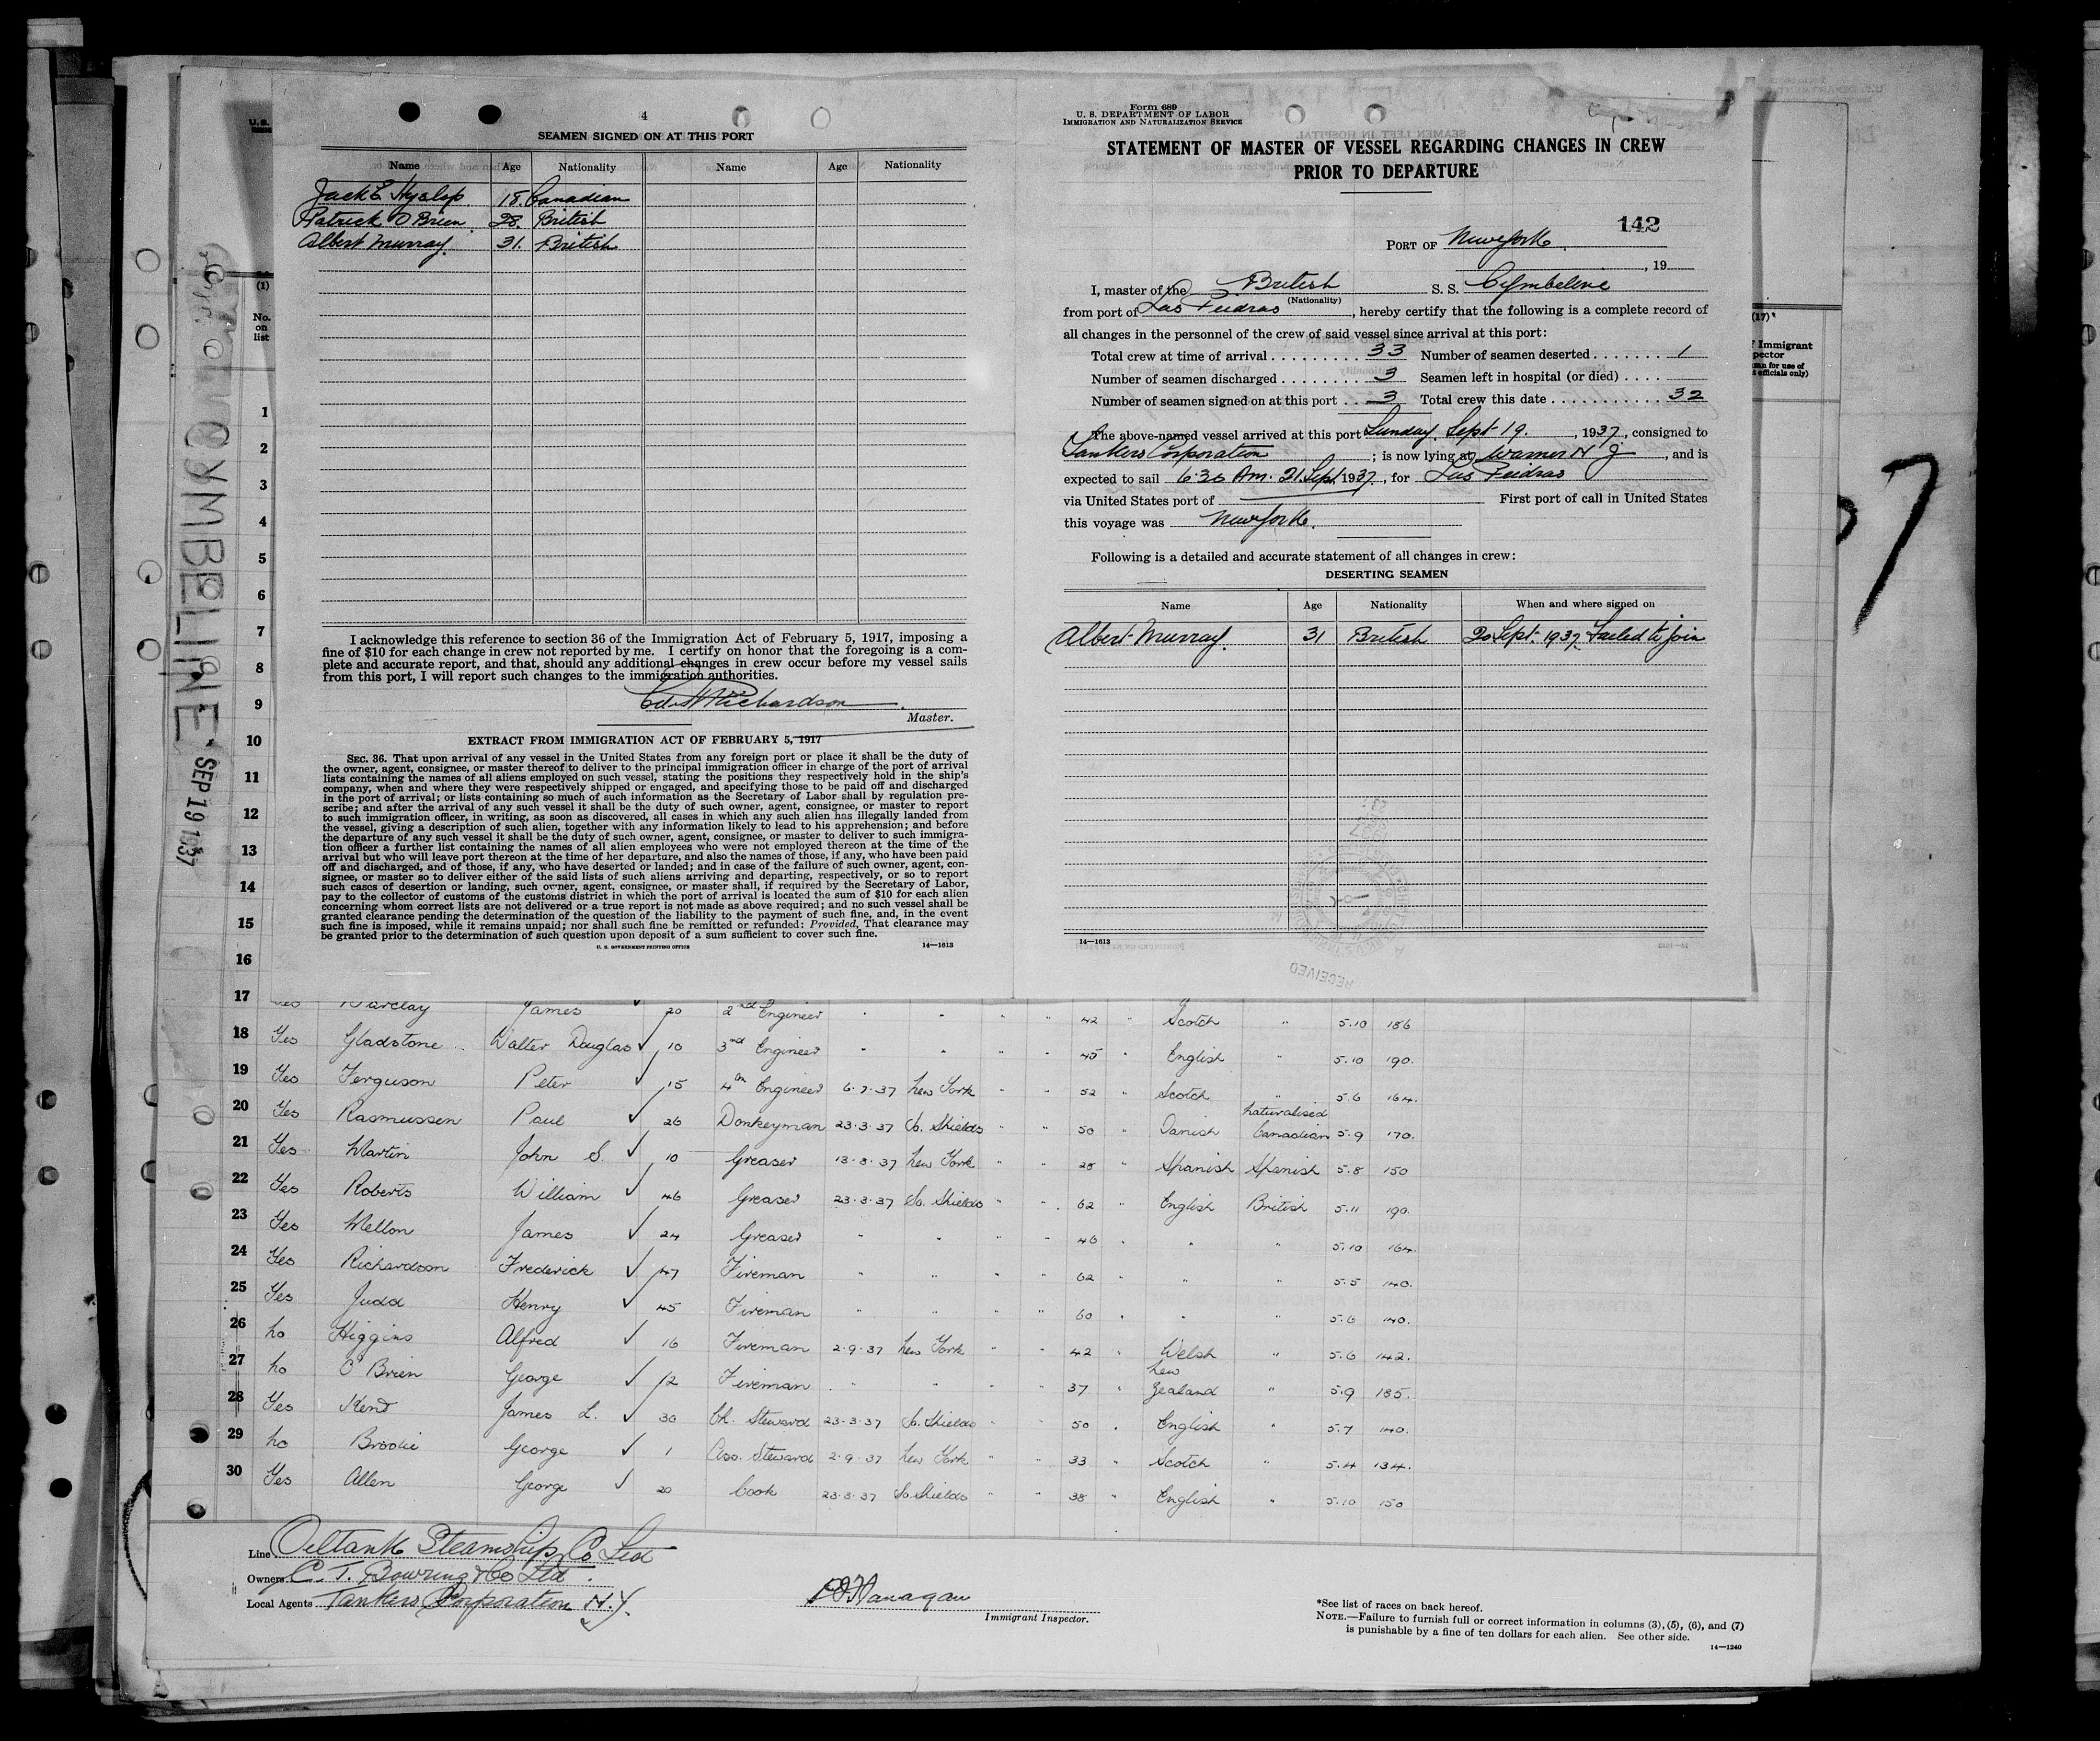 4
SEAMEN SIGNED ON AT THIS PORT
Name Age Nationality Name Age Nationality
Jack E Hyslop 18. Canadian
Patrick O Brien. 28. British
Albert Murray. 31. British
I acknowledge this reference to section 36 of the Immigration Act of February 5, 1917, imposing a
fine of $10 for each change in crew not reported by me. I certify on honor that the foregoing is a com-
plete and accurate report, and that, should any additional changes in crew occur before my vessel sails
from this port, I will report such changes to the immigration authorities.
Richardson
Master.
EXTRACT FROM IMMIGRATION ACT OF FEBRUARY 5, 1917
SEC. 36. That upon arrival of any vessel in the United States from any foreign port or place it shall be the duty of
the owner, agent, consignee, or master thereof to deliver to the principal immigration officer in charge of the port of arrival
lists containing the names of all aliens employed on such vessel, stating the positions they respectively hold in the ship's
company, when and where they were respectively shipped or engaged, and specifying those to be paid off and discharged
in the port of arrival; or lists containing so much of such information as the Secretary of Labor shall by regulation pre-
scribe; and after the arrival of any such vessel it shall be the duty of such owner, agent, consignee, or master to report
to such immigration officer, in writing, as soon as discovered, all cases in which any such alien has illegally landed from
the vessel, giving a description of such alien, together with any information likely to lead to his apprehension; and before
the departure of any such vessel it shall be the duty of such owner, agent, consignee, or master to deliver to such immigra-
tion officer a further list containing the names of all alien employees who were not employed thereon at the time of the
arrival but who will leave port thereon at the time of her departure, and also the names of those, if any, who have been paid
off and discharged, and of those, if any, who have deserted or landed; and in case of the failure of such owner, agent, con-
signee, or master so to deliver either of the said lists of such aliens arriving and departing, respectively, or so to report
such cases of desertion or landing, such owner, agent, consignee, or master shall, if required by the Secretary of Labor,
pay to the collector of customs of the customs district in which the port of arrival is located the sum of $10 for each alien
concerning whom correct lists are not delivered or a true report is not made as above required; and no such vessel shall be
granted clearance pending the determination of the question of the liability to the payment of such fine, and, in the event
such fine is imposed, while it remains unpaid; nor shall such fine be remitted or refunded: Provided, That clearance may
be granted prior to the determination of such question upon deposit of a sum sufficient to cover such fine.
U. S. GOVERNMENT PRINTING OFFICE 14—1613
Form 689
U. S. DEPARTMENT OF LABOR
IMMIGRATION AND NATURALIZATION SERVICE
STATEMENT OF MASTER OF VESSEL REGARDING CHANGES IN CREW
PRIOR TO DEPARTURE
142
PORT OF New York.
, 19
I, master of the British S. S. Cymbeline
(Nationality)
from port of Las Piedras, hereby certify that the following is a complete record of
all changes in the personnel of the crew of said vessel since arrival at this port:
Total crew at time of arrival 33 Number of seamen deserted 1
Number of seamen discharged 3 Seamen left in hospital (or died)
Number of seamen signed on at this port 3 Total crew this date 32
The above-named vessel arrived at this port Sunday, Sept 19., 1937, consigned to
Tankers Corporation; is now lying at Warner N J, and is
expected to sail 6.30 Am. 21. Sept 1937, for Las Piedras
via United States port of First port of call in United States
this voyage was New York.
Following is a detailed and accurate statement of all changes in crew:
DESERTING SEAMEN
Name Age Nationality When and where signed on
Albert Murray. 31 British 20 Sept. 1937. Failed to join
14—1613
RECEIVED
CYMBELINE SEP 19 1937
U. S.
(1)
No.
on
list
1
2
3
4
5
6
7
8
9
10
11
12
13
14
15
16
(17)
Immigrant
17 Yes Barclay James 20 2nd Engineer " " " " 42 " Scotch " 5.10 186
18 Yes Gladstone Walter Douglas 10 3rd Engineer " " " " 45 " English " 5.10 190.
19 Yes Ferguson Peter 15 4th Engineer 6.7.37 New York " " 52 " Scotch " 5.6 164.
20 Yes Rasmussen Paul 26 Donkeyman 23.3.37 So. Shields " " 50 " Danish Naturalised Canadian 5.9 170.
21 Yes Martin John S. 10 Greaser 13.8.37 New York " " 28 " Spanish Spanish 5.8 150
22 Yes Roberts William 46 Greaser 23.3.37 So. Shields " " 62 " English British 5.11 190.
23 Yes Mellon James 24 Greaser " " " " 46 " " " 5.10 164.
24 Yes Richardson Frederick 47 Fireman " " " " 62 " " " 5.5 140.
25 Yes Judd Henry 45 Fireman " " " " 60 " " " 5.6 140.
26 No Higgins Alfred 16 Fireman 2.9.37 New York " " 42 " Welsh " 5.6 142.
27 No O'Brien George 12 Fireman " " " " 37 " New Zealand " 5.9 185.
28 Yes Kend James L. 30 Ch. Steward 23.3.37 So. Shields " " 50 " English " 5.7 140.
29 No Brodie George 1 Ass. Steward 2.9.37 New York " " 33 " Scotch " 5.4 134.
30 Yes Allen George 20 Cook 23.3.37 So. Shields " " 38 " English " 5.10 150
Line Oiltank Steamship Co Ltd
Owners C. T. Bowring & Co Ltd.
Local Agents Tankers Corporation N.Y.
Flanagan
Immigrant Inspector.
*See list of races on back hereof.
NOTE.—Failure to furnish full or correct information in columns (3), (5), (6), and (7)
is punishable by a fine of ten dollars for each alien. See other side.
14—1240